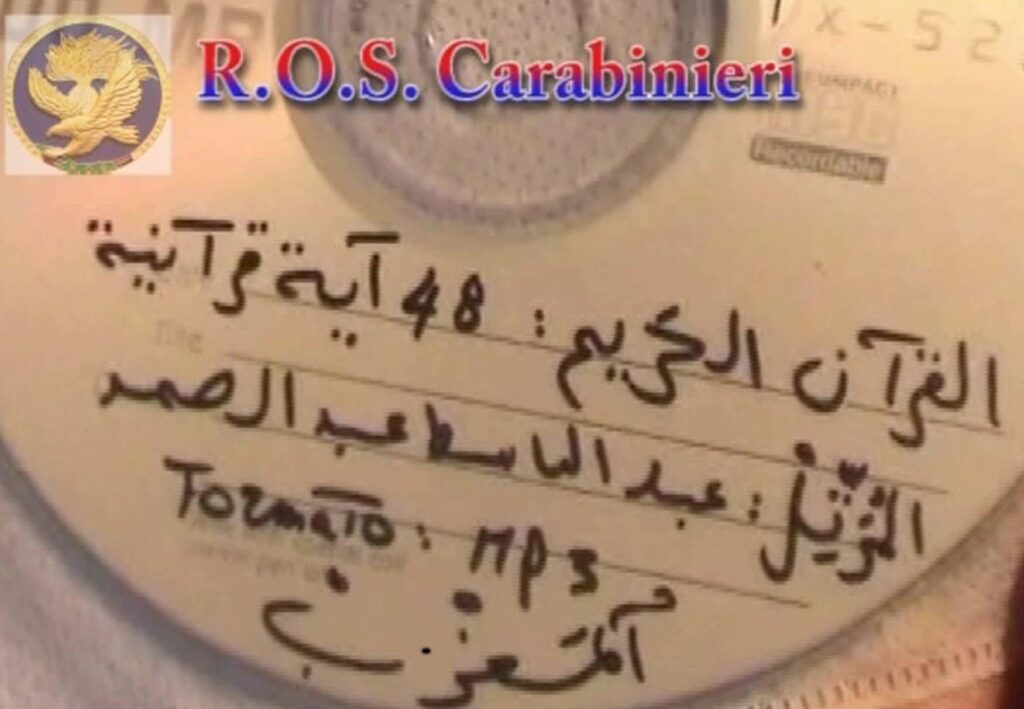 R.O.S. Carabinieri
Recordable
القرآن الكريم : 48 آية قرآنية
الترتيل : عبد الباسط عبد الصمد
Formato : MP3